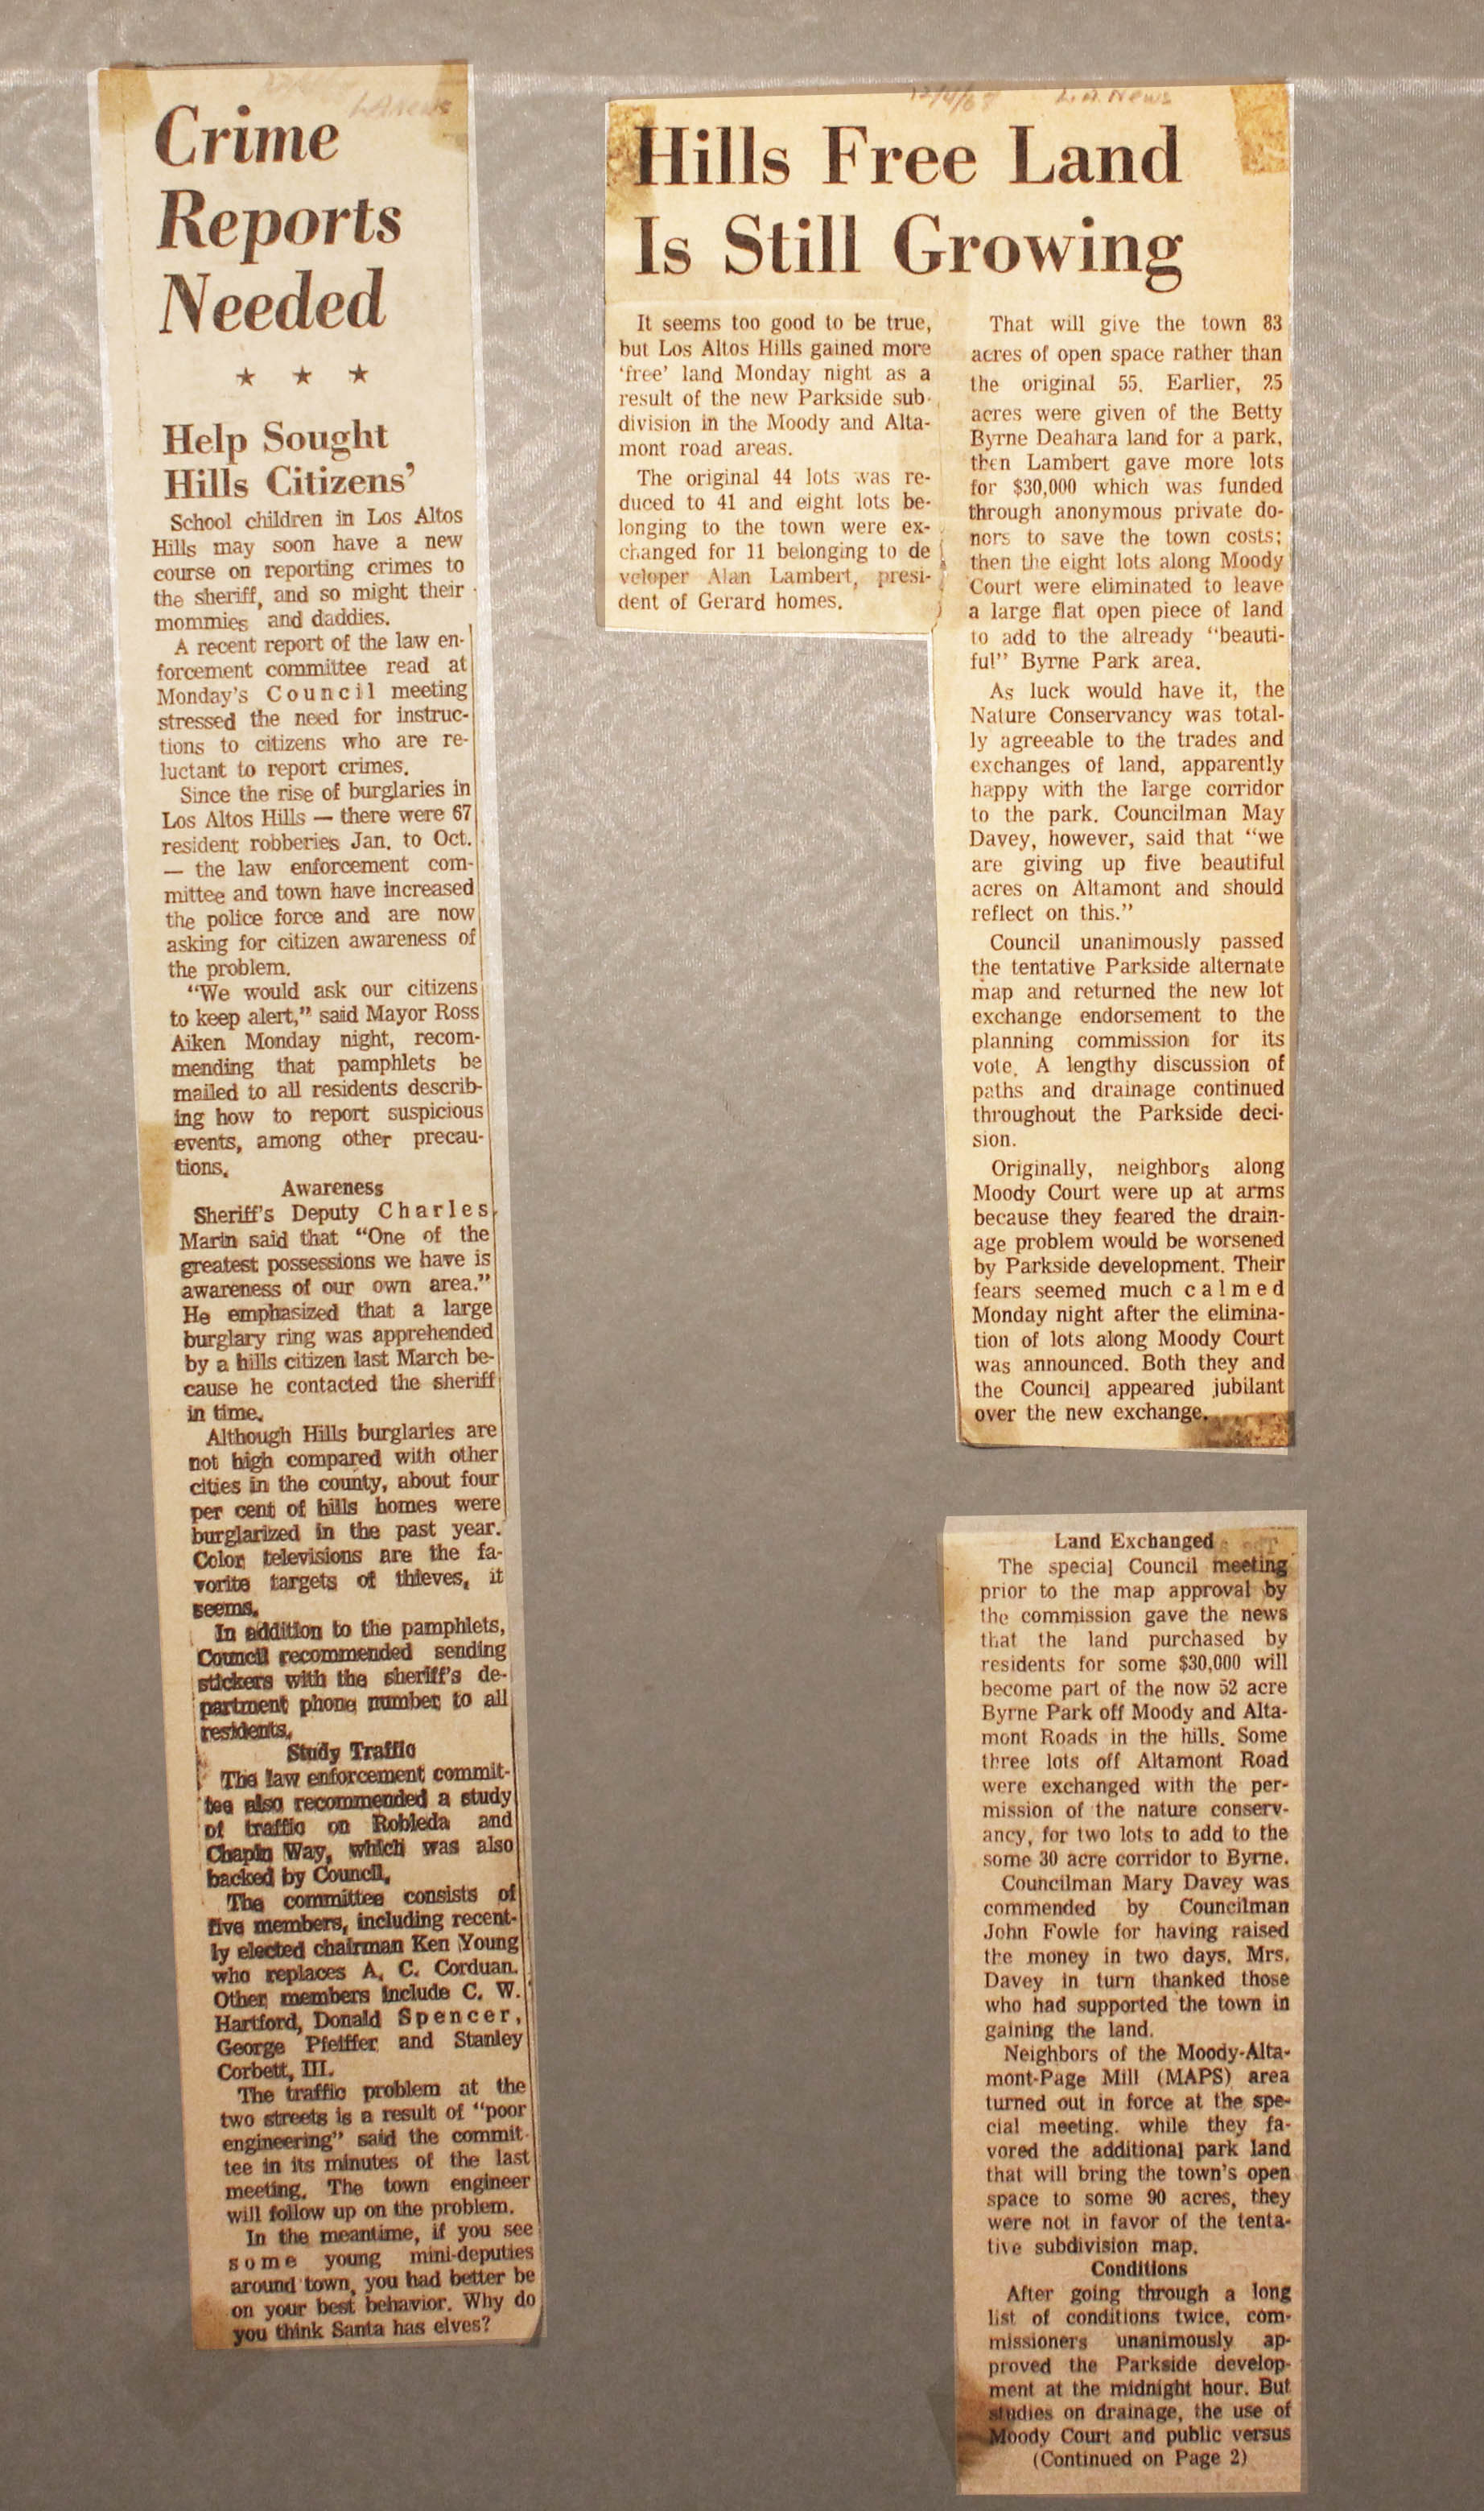 L.A. News
Crime
Reports
Needed
★ ★ ★
Help Sought
Hills Citizens'
School children in Los Altos
Hills may soon have a new
course on reporting crimes to
the sheriff, and so might their
mommies and daddies.
A recent report of the law en-
forcement committee read at
Monday's Council meeting
stressed the need for instruc-
tions to citizens who are re-
luctant to report crimes.
Since the rise of burglaries in
Los Altos Hills — there were 67
resident robberies Jan. to Oct.
— the law enforcement com-
mittee and town have increased
the police force and are now
asking for citizen awareness of
the problem.
"We would ask our citizens
to keep alert," said Mayor Ross
Aiken Monday night, recom-
mending that pamphlets be
mailed to all residents describ-
ing how to report suspicious
events, among other precau-
tions.
Awareness
Sheriff's Deputy Charles
Marin said that "One of the
greatest possessions we have is
awareness of our own area."
He emphasized that a large
burglary ring was apprehended
by a hills citizen last March be-
cause he contacted the sheriff
in time.
Although Hills burglaries are
not high compared with other
cities in the county, about four
per cent of hills homes were
burglarized in the past year.
Color televisions are the fa-
vorite targets of thieves, it
seems.
In addition to the pamphlets,
Council recommended sending
stickers with the sheriff's de-
partment phone number to all
residents.
Study Traffic
The law enforcement commit-
tee also recommended a study
of traffic on Robleda and
Chapin Way, which was also
backed by Council.
The committee consists of
five members, including recent-
ly elected chairman Ken Young
who replaces A. C. Corduan.
Other members include C. W.
Hartford, Donald Spencer,
George Pfeiffer and Stanley
Corbett, III.
The traffic problem at the
two streets is a result of "poor
engineering" said the commit-
tee in its minutes of the last
meeting. The town engineer
will follow up on the problem.
In the meantime, if you see
some young mini-deputies
around town, you had better be
on your best behavior. Why do
you think Santa has elves?
12/4/68 L.A. News
Hills Free Land
Is Still Growing
It seems too good to be true,
but Los Altos Hills gained more
'free' land Monday night as a
result of the new Parkside sub-
division in the Moody and Alta-
mont road areas.
The original 44 lots was re-
duced to 41 and eight lots be-
longing to the town were ex-
changed for 11 belonging to de
veloper Alan Lambert, presi-
dent of Gerard homes.
That will give the town 83
acres of open space rather than
the original 55. Earlier, 25
acres were given of the Betty
Byrne Deahara land for a park,
then Lambert gave more lots
for $30,000 which was funded
through anonymous private do-
nors to save the town costs;
then the eight lots along Moody
Court were eliminated to leave
a large flat open piece of land
to add to the already "beauti-
ful" Byrne Park area.
As luck would have it, the
Nature Conservancy was total-
ly agreeable to the trades and
exchanges of land, apparently
happy with the large corridor
to the park. Councilman May
Davey, however, said that "we
are giving up five beautiful
acres on Altamont and should
reflect on this."
Council unanimously passed
the tentative Parkside alternate
map and returned the new lot
exchange endorsement to the
planning commission for its
vote. A lengthy discussion of
paths and drainage continued
throughout the Parkside deci-
sion.
Originally, neighbors along
Moody Court were up at arms
because they feared the drain-
age problem would be worsened
by Parkside development. Their
fears seemed much calmed
Monday night after the elimina-
tion of lots along Moody Court
was announced. Both they and
the Council appeared jubilant
over the new exchange.
Land Exchanged
The special Council meeting
prior to the map approval by
the commission gave the news
that the land purchased by
residents for some $30,000 will
become part of the now 52 acre
Byrne Park off Moody and Alta-
mont Roads in the hills. Some
three lots off Altamont Road
were exchanged with the per-
mission of the nature conserv-
ancy, for two lots to add to the
some 30 acre corridor to Byrne.
Councilman Mary Davey was
commended by Councilman
John Fowle for having raised
the money in two days. Mrs.
Davey in turn thanked those
who had supported the town in
gaining the land.
Neighbors of the Moody-Alta-
mont-Page Mill (MAPS) area
turned out in force at the spe-
cial meeting. while they fa-
vored the additional park land
that will bring the town's open
space to some 90 acres, they
were not in favor of the tenta-
tive subdivision map.
Conditions
After going through a long
list of conditions twice, com-
missioners unanimously ap-
proved the Parkside develop-
ment at the midnight hour. But
studies on drainage, the use of
Moody Court and public versus
(Continued on Page 2)